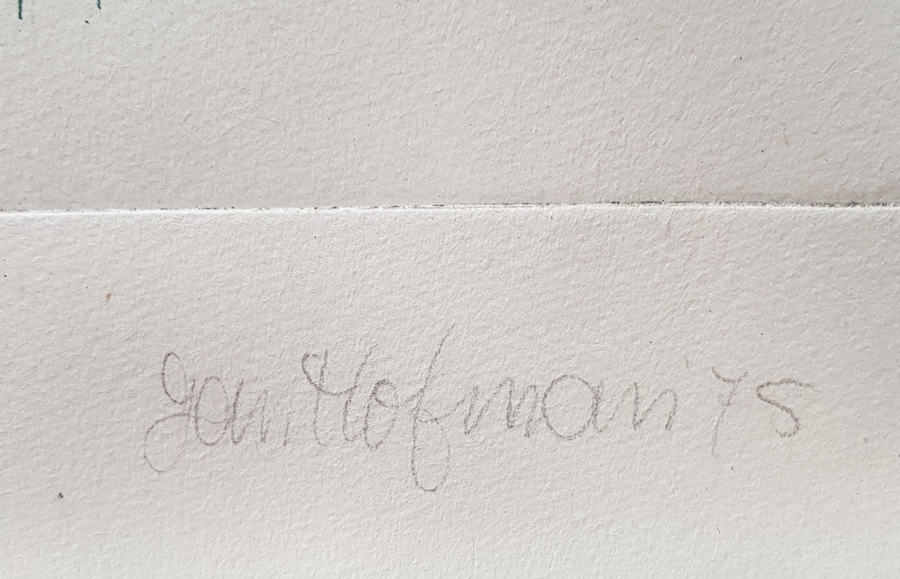 Jan Hofman '75